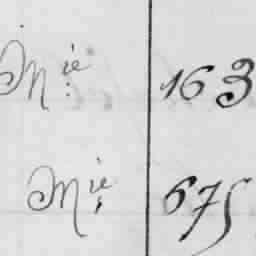 Mie 163
Mie 675